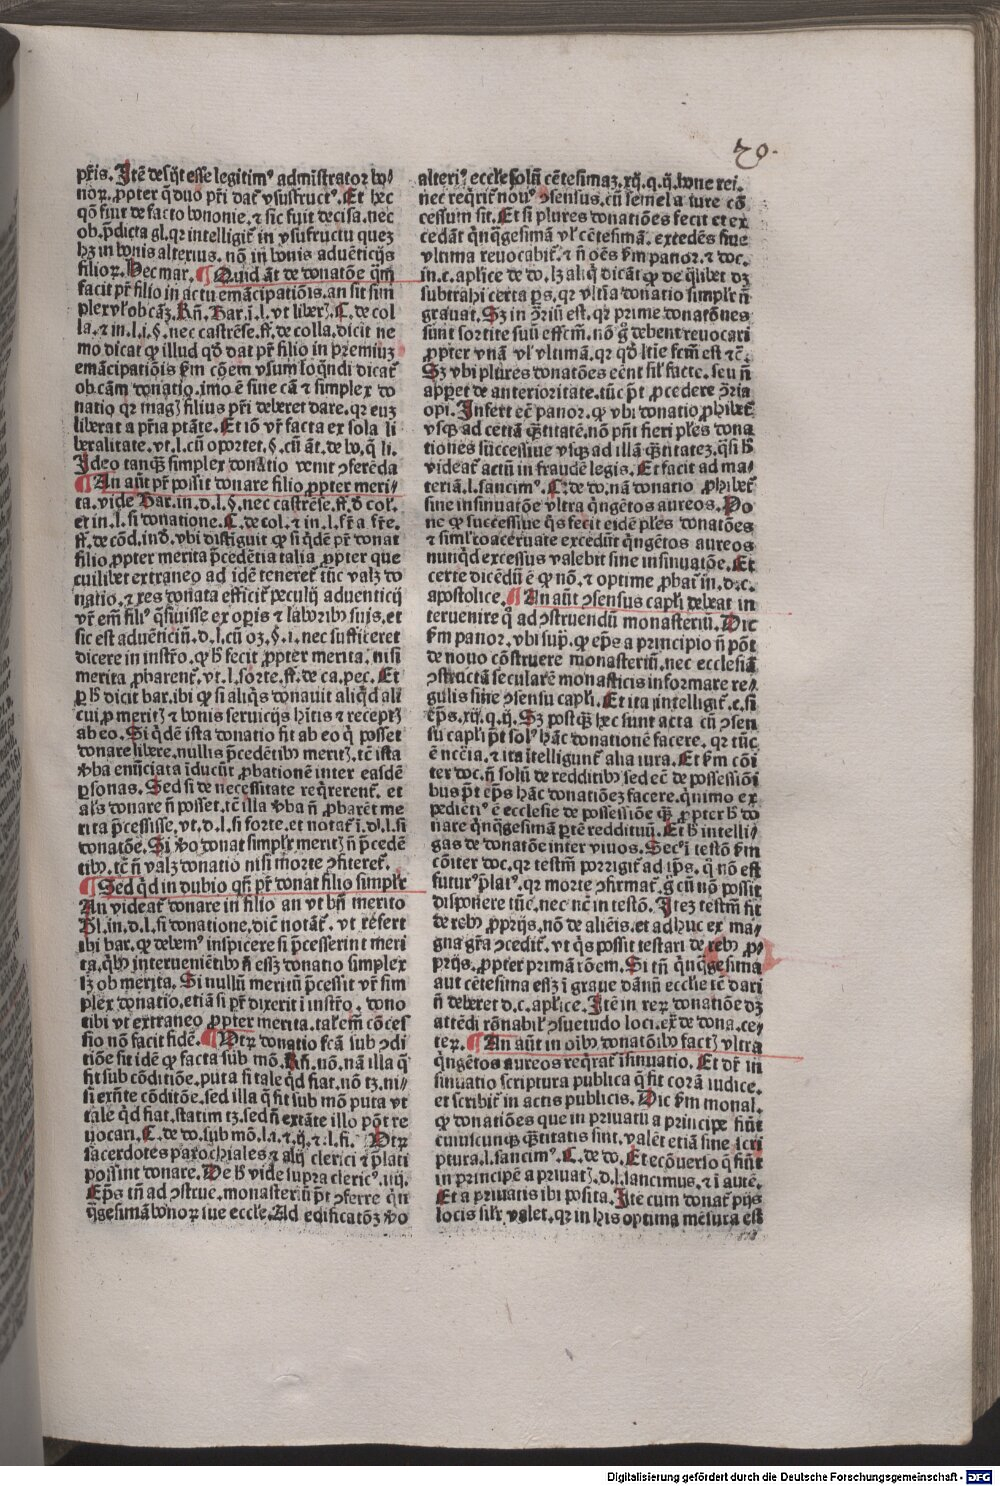 70.
pr̄is. Itē desijt esse legitimꝰ administrator bo⸗
noꝝ. ꝓpter q̄ duo pr̄i datꝭ vsusfructꝰ. Et hec
qō fuit de facto bononie. ⁊ sic fuit decisa. nec
ob. p̄dicta gl. qꝛ intelligit᷑ in vsufructu quez
hꝫ in bonis alterius. nō in bonis aduēticijs
filioꝝ. Hec mar. ¶ Quid āt de donatōe q̄m
facit pr̄ filio in actu emācipatiōis. an sit sim
plex vl̓ ob cāꝫ. Rn̄. Bar. ī. l. vt liberꝭ. C. de col
la. ⁊ in. l. i. §. nec castrēse. ff. de colla. dicit ne
mo dicat ꝙ illud qd̓ dat pr̄ filio in premiuꝫ
emācipatiōis ẜm cōem vsum loq̄ndi dicat᷑
ob cām donatio. imo ē sine cā ⁊ simplex do
natio qꝛ magꝭ filius pr̄i deberet dare. qꝛ euꝫ
liberat a pr̄ia ptāte. Et iō vr̄ facta ex sola li
beralitate. vt. l. cū oportet. §. cū āt. de bo. q̄ li.
Ideo tanqꝫ simplex donatio venit ꝯferēda
¶ An aūt pr̄ possit donare filio ꝓpter meri⸗
ta. vide Bar. in. d. l. §. nec castrēse. ff. d̓ col.
et in. l. si donatione. C. de col. ⁊ in. l. fr̄a a fr̄e.
ff. de cōd. ind̓. vbi distīguit ꝙ si q̇dē pr̄ donat
filio ꝓpter merita p̄cedētia talia ꝓpter que
cuilibet extraneo ad idē teneret᷑ tūc valꝫ do
natio. ⁊ res donata efficit᷑ peculij aduenticij
vr̄ em̄ filiꝰ q̄siuisse ex oꝑis ⁊ laboribꝰ suis. et
sic est aduēticiū. d. l. cū oꝫ. §. i. nec sufficeret
dicere in instr̄o. ꝙ h̓ fecit ꝓpter merita. nisi
merita ꝓbarent᷑. vt. l. sorte. ff. de ca. pec. Et
ꝑ h̓ dicit bar. ibi ꝙ si aliq̇s donauit aliq̇d ali
cui ꝓ meritꝭ ⁊ bonis seruicijs hītis ⁊ receptꝭ
ab eo. Si q̇dē ista donatio fit ab eo q̇ posset
donare libere. nullis p̄cedētibꝰ meritꝭ. tc̄ ista
v̓ba enūciata īducūt ꝓbationē inter easdē
ꝑsonas. Sed si de necessitate req̇rerent᷑. et
al̓s donare n̄ posset. tc̄ illa v̓ba n̄ ꝓbarēt me
rita p̄cessisse. vt. d. l. si forte. et notat᷑ ī. d̓. l. si
donatōe. Si v̓o donat simpl̓r meritꝭ n̄ p̄cedē
tibꝰ. tc̄ n̄ valꝫ donatio nisi morte ꝯfiteret᷑.
¶ Sed q̇d in dubio qn̄ pr̄ donat filio simpl̓r
An videat᷑ donare in filio an vt bn̄ merito
Bl. in. d. l. si donatione. dic̄ notāt᷑. vt refert
ibi bar. ꝙ debemꝰ inspicere si p̄cesserint meri
ta. q̇bꝰ interueniētibꝰ n̄ eēꝫ donatio simplex
lꝫ ob merita. Si nullū meritū p̄cessit vr̄ sim
plex donatio. etiā si pr̄ dixerit ī instr̄o. dono
tibi vt extraneo ꝓpter merita. tal̓ em̄ cōces
sio nō facit fidē. ¶ Vtꝝ donatio fc̄ā sub ꝯdi
tiōe sit idē ꝙ facta sub mō. Rn̄. nō. nā illa q̄
fit sub cōditiōe. puta si tale q̇d fiat. nō tꝫ. ni⸗
si exn̄te cōditōe. sed illa q̄ fit sub mō puta vt
tale q̇d fiat. statim tꝫ. sed n̄ extāte illo pōt re
uocari. C. de do. sub mō. l. i. ⁊ ij. ⁊ l. fi. Vtꝝ
sacerdotes parochiales ⁊ alij clerici ⁊ p̄lati
possint donare. De h̓ vide supra clericꝰ. iiij.
Ep̄s tn̄ ad ꝯstrue. monasteriū p̄t ꝯferre q̇n
q̄gesimā bonoꝝ sue eccl̓e. Ad edificatōꝫ v̓o
alteriꝰ eccl̓e solū cētesimaꝫ. xij. q. ij. bone rei.
nec req̇rit᷑ nouꝰ ꝯsensus. cū semel a iure cō
cessum sit. Et si plures donatiōes fecit et ex
cedāt q̇nq̄gesimā vl̓ cētesimā. extedēs siue
vltima reuocabit᷑. ⁊ n̄ oēs ẜm panor. ⁊ doc.
in. c. apl̓ice de do. lꝫ aliq̇ dicāt ꝙ de q̇libet dꝫ
subtrahi certa ꝑs. qꝛ vltīa donatio simpl̓r n̄
grauat. Sꝫ in ꝯriū est. qꝛ prime donatōnes
sunt sortite suū effcm̄. nō ḡ debent reuocari
ꝓpter vnā vl̓ vltimā. qꝛ qd̓ l̓tie fcm̄ est ⁊c̄.
Sꝫ vbi plures donatōes eēnt sil̓ facte. seu n̄
apꝑet de anterioritate. tūc p̄t ꝓcedere ꝯria
opi. Infert ec̄ panor. ꝙ vbi donatio ꝓhibet᷑
vsqꝫ ad certā q̄titatē. nō pn̄t fieri pl̓es dona
tiones successiue vsqꝫ ad illā q̄titatēꝫ. q̄si h̓
videat᷑ actū in fraudē legis. Et facit ad ma⸗
teriā. l. sancimꝰ. C. de do. nā donatio ꝓhibet᷑
sine insinuatōe vltra q̇ngētos aureos. Po
ne ꝙ successiue q̇s fecit eidē pl̓es donatōes
⁊ simul coaceruate excedūt q̇ngētos aureos
nunq̇d excessus valebit sine insinuatōe. Et
certe dicēdū ē ꝙ nō. ⁊ optime ꝓbat᷑ in. d. c.
apostolice. ¶ An aūt ꝯsensus capl̓i debeat in
teruenire q̄ ad ꝯstruendū monasteriū. Dic
ẜm panor. vbi supͣ. ꝙ ep̄s a principio n̄ pōt
de nouo cōstruere monasteriū. nec ecclesiā
ꝯstructā secularē monasticis informare re⸗
gulis sine ꝯsensu capl̓i. Et ita intelligit᷑. c. si
ep̄s. xij. q. ij. Sꝫ postqꝫ hec sunt acta cū ꝯsen
su capl̓i p̄t solꝰ hāc donationē facere. qꝛ tūc
ē nc̄cia. ⁊ ita ītelligunt᷑ alia iura. Et ẜm cōi
ter doc. n̄ solū de redditibꝰ sed ec̄ de possessiōi
bus p̄t ep̄s hāc donatiōeꝫ facere. q̇nimo ex
pediētiꝰ ē ecclesie de possessiōe qꝫ ꝓpter h̓ do
nare q̇nq̄gesimā ꝑtē reddituū. Et h̓ intelli⸗
gas de donatōe inter viuos. Secꝰ ī testō ẜm
cōiter doc. qꝛ testm̄ porrigit᷑ ad ip̄s. q̇ nō est
futurꝰ p̄latꝰ. qꝛ morte ꝯfirmat᷑. ḡ cū nō possit
disponere tūc. nec nc̄ in testō. Iteꝫ testm̄ fit
de rebꝰ ꝓprijs. nō de aliēis. et adhuc ex ma⸗
gna gr̄a ꝯcedit᷑. vt q̇s possit testari de rebꝰ ꝓ⸗
prijs. ꝓpter primā rōem. Si tn̄ q̇nq̄gesima
aut cētesima esꝫ ī graue dānū ecclie tc̄ dari
n̄ deberet d. c. apl̓ice. Itē in reꝝ donatiōe dꝫ
attēdi rōnabil̓ ꝯsuetudo loci. ex̄ de dona. ce⸗
teꝝ. ¶ An aūt in oībꝰ donatōibꝰ factꝭ vltra
q̇ngētos aureos req̇rat᷑ īsinuatio. Et dr̄ in
sinuatio scriptura publica q̄ fit corā iudice.
et scribit᷑ in actis publicis. Dic ẜm monal.
ꝙ donatiōes que in priuatū a principe fiūt
cuiuscunqꝫ q̄titatis sint. valēt etiā sine scri
ptura. l. sancimꝰ. C. de do. Et ecōuerso q̄ fiūt
in principē a priuatꝭ. d. l. sancimus. ⁊ ī autē.
Et a priuatis ibi posita. Itē cum donat᷑ pijs
locis sil̓r valet. qꝛ in his optima mēsura est
Digitalisierung gefördert durch die Deutsche Forschungsgemeinschaft - DFG